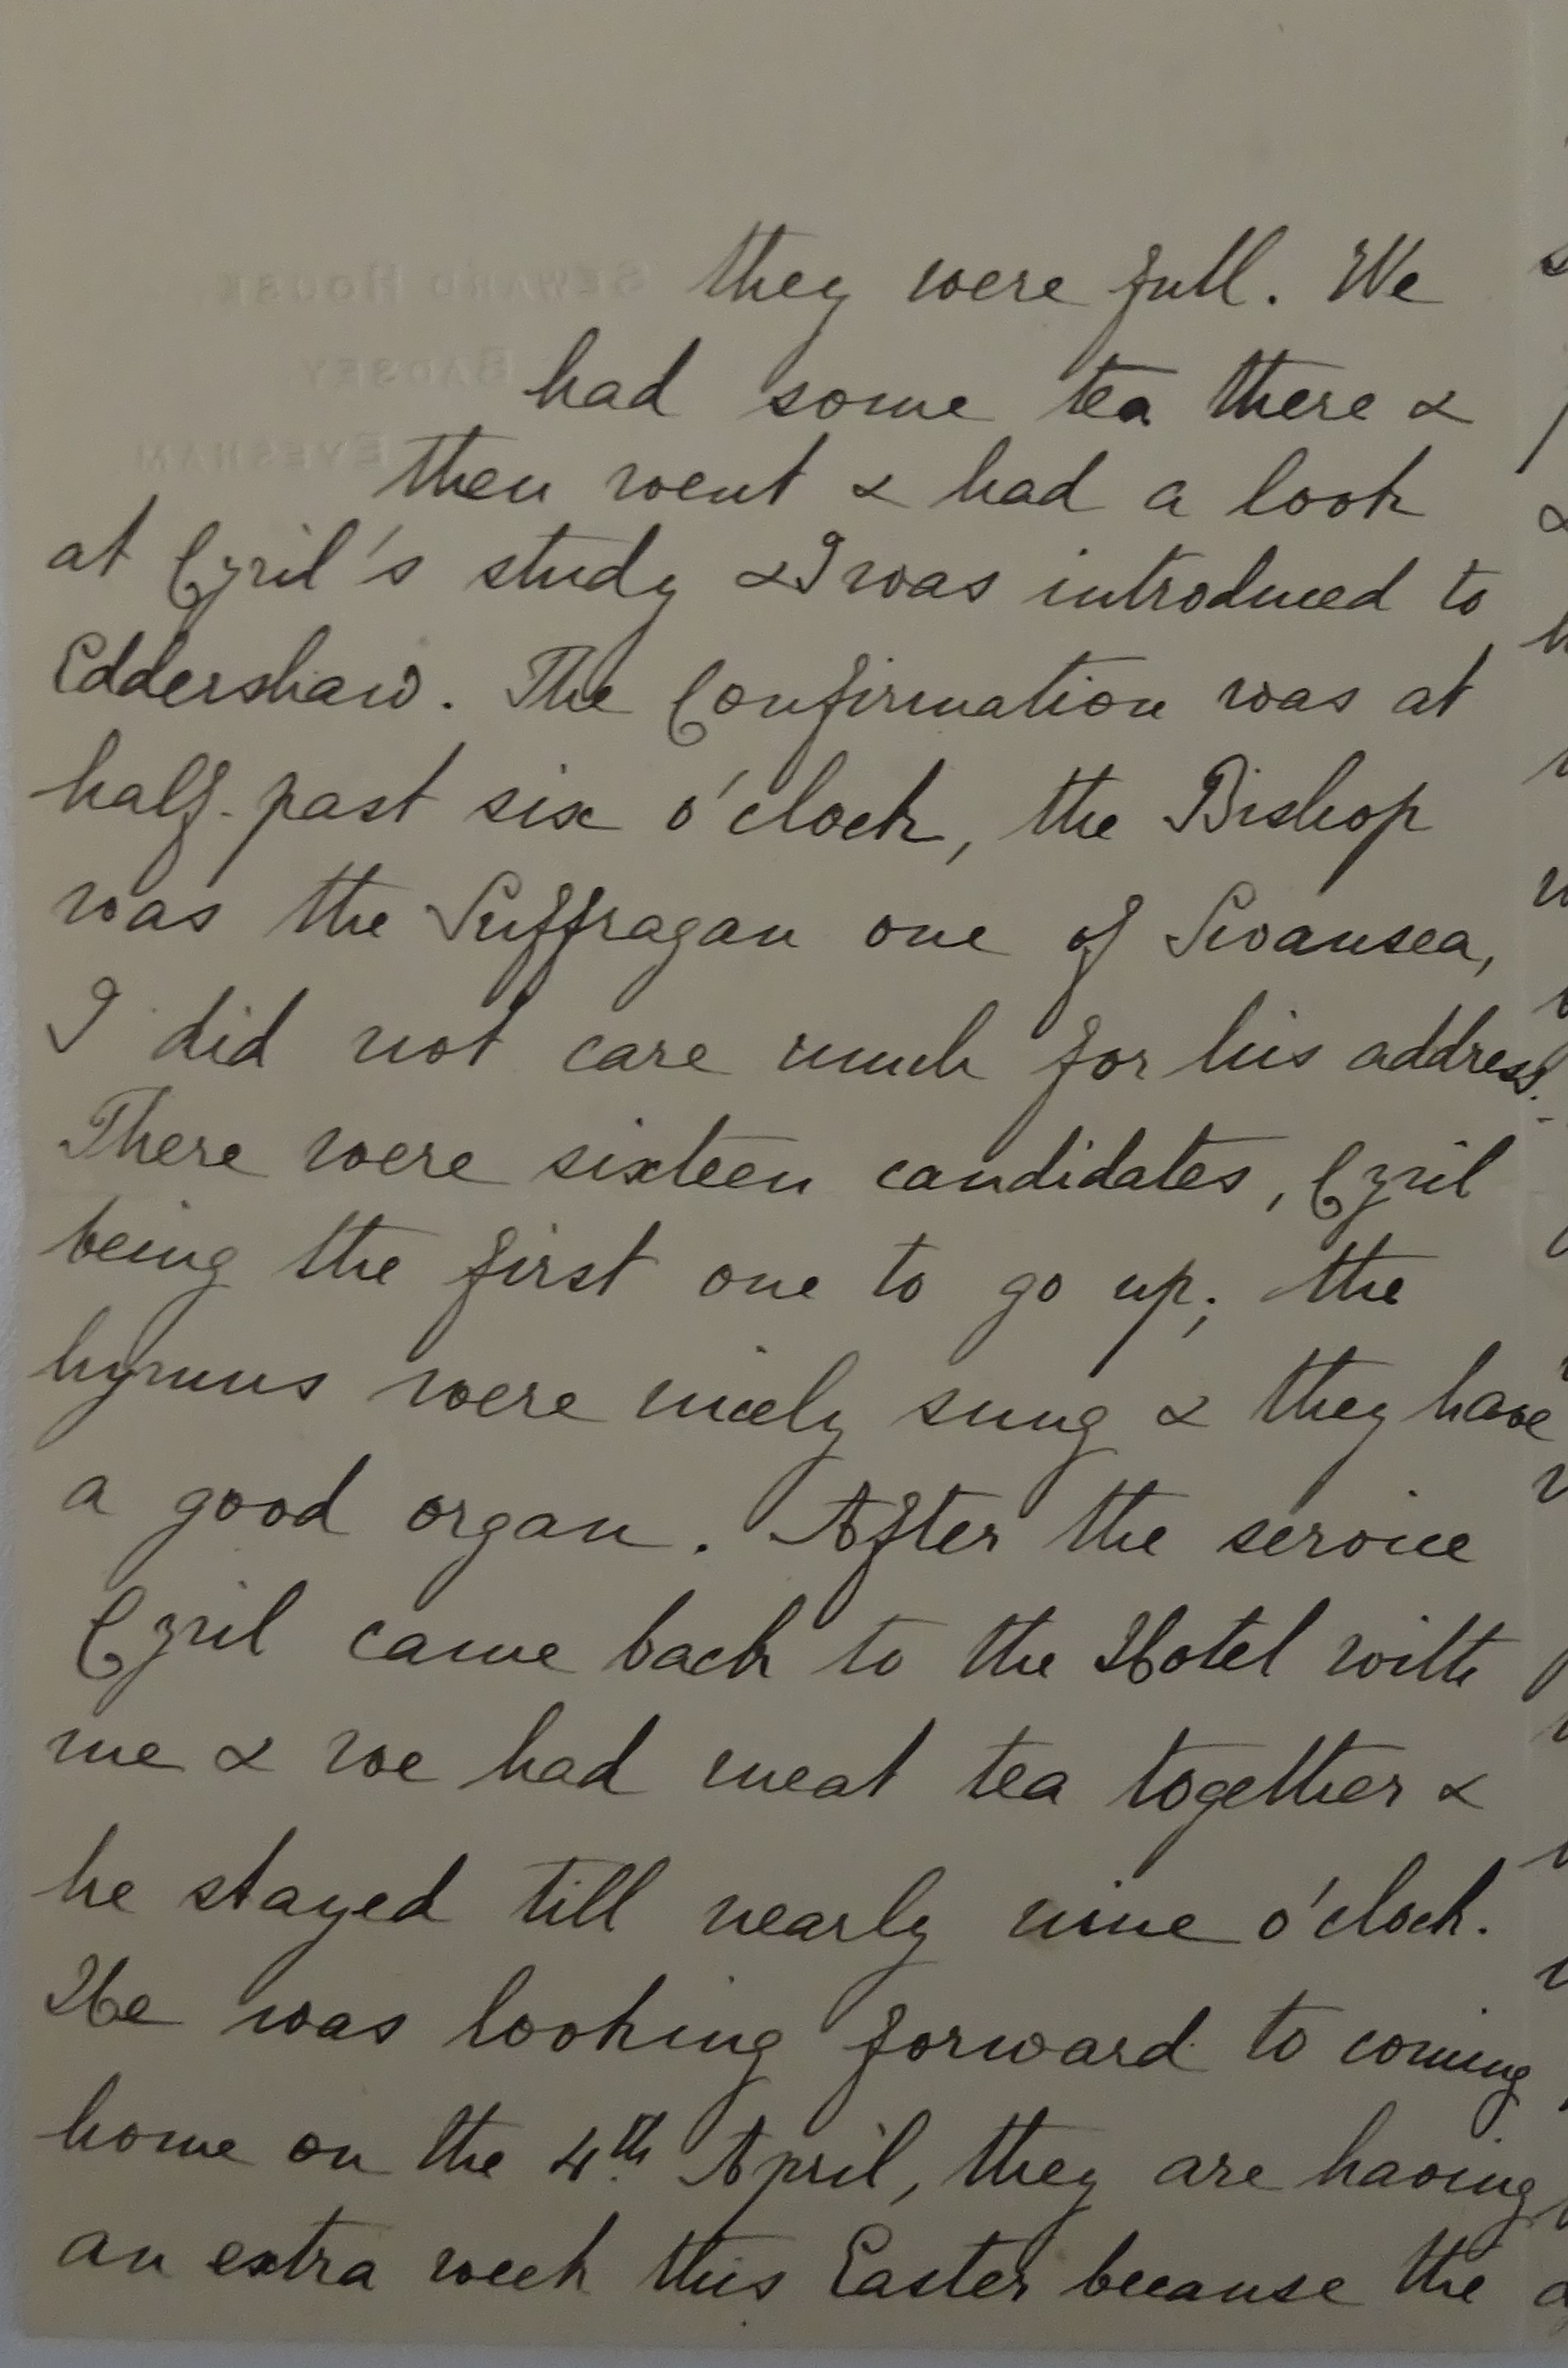 SEWARD HOUSE,
BADSEY
EVESHAM.
they were full. We
had some tea there &
then went & had a look
at Cyril's study & I was introduced to
Eddershaw. The Confirmation was at
half-past six o'clock, the Bishop
was the Suffragan one of Swansea,
I did not care much for his address.
There were sixteen candidates, Cyril
being the first one to go up; the
hymns were nicely sung & they have
a good organ. After the service
Cyril came back to the Hotel with
me & we had meat tea together &
he stayed till nearly nine o'clock.
He was looking forward to coming
home on the 4th April, they are having
an extra week this Easter because the